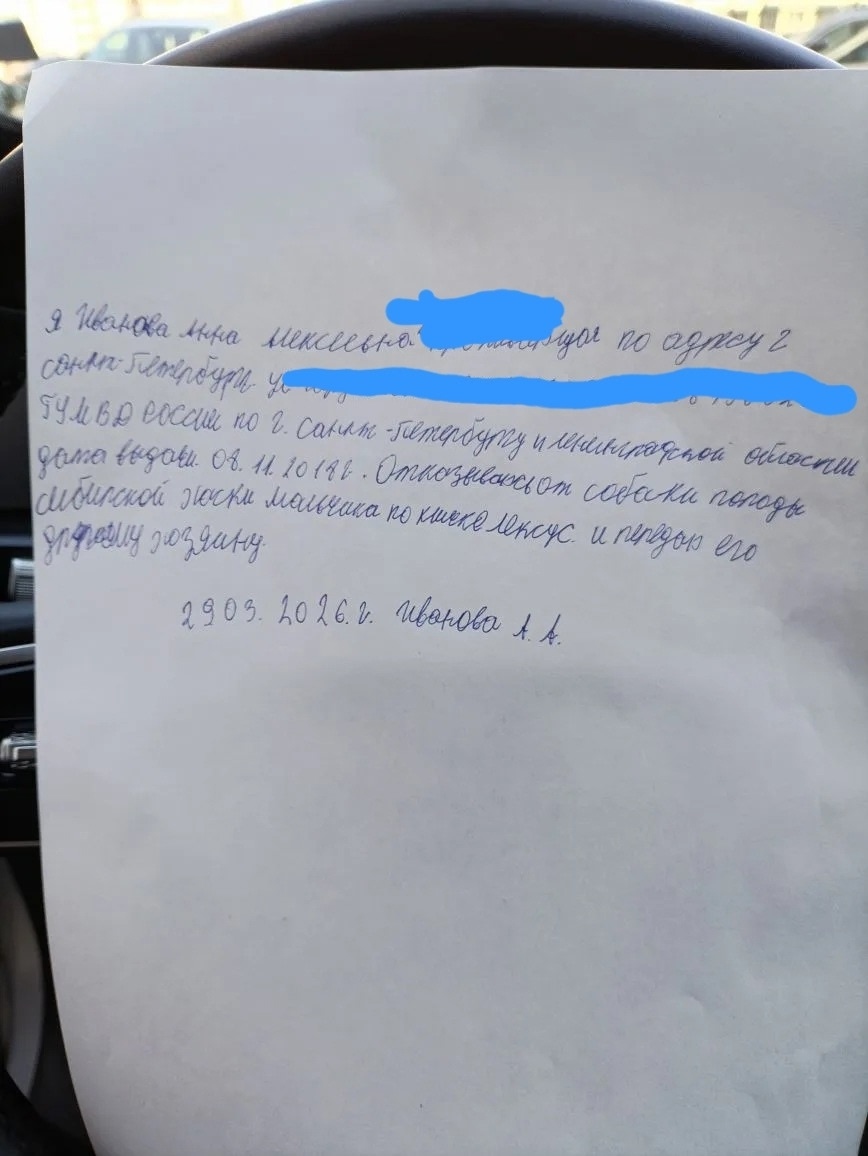 Я Иванова Анна Алексеевна по адресу г
Санкт-Петербург
ГУМВД России по г. Санкт-Петербургу и Ленинградской области
дата выдачи. 08.11.2018г. Отказываюсь от собаки породы
сибирской хаски мальчика по кличке лексус. и передаю его
другому хозяину.
29 03. 2026.г. Иванова А. А.